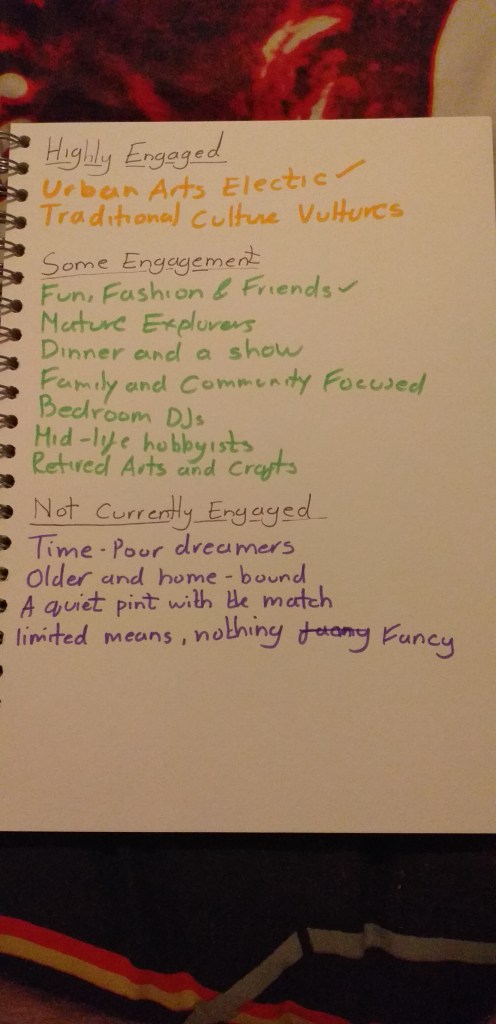 Highly Engaged
Urban Arts Electic ✓
Traditional Culture Vultures
Some Engagement
Fun, Fashion & Friends ✓
Mature Explorers
Dinner and a show
Family and Community Focused
Bedroom DJs
Mid-life hobbyists
Retired Arts and Crafts
Not Currently Engaged
Time-Poor dreamers
Older and home-bound
A quiet pint with the match
limited means, nothing Fancy